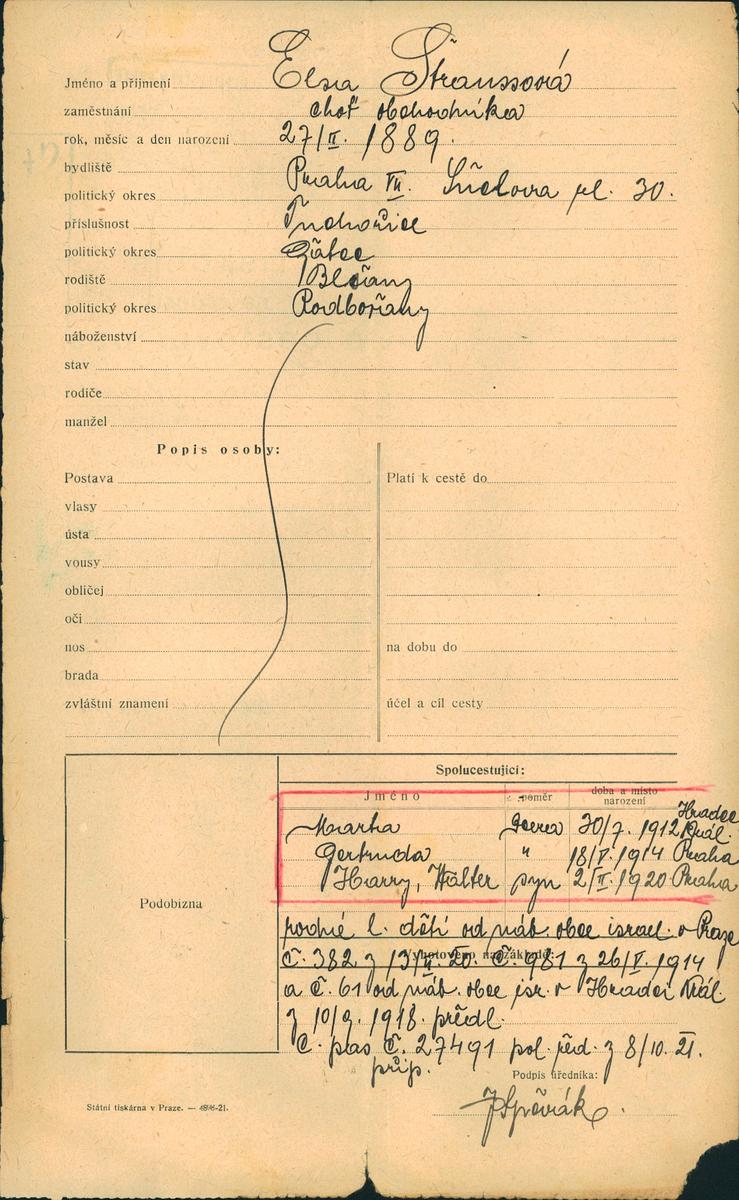 Jméno a příjmení Elsa Straussová
zaměstnání choť obchodníka
rok, měsíc a den narození 27/II. 1889.
bydliště Praha VII. ul. 30.
politický okres
příslušnost Tuchořice
politický okres Žatec
rodiště Blšany
politický okres Podbořany
náboženství
stav
rodiče
manžel
Popis osoby:
Postava
vlasy
ústa
vousy
obličej
oči
nos
brada
zvláštní znamení
Platí k cestě do
na dobu do
účel a cíl cesty
Podobizna
Spolucestující:
Jméno poměr doba a místo narození
Marha dcera 30/7. 1912 Hradec Král.
Gertruda " 18/V. 1914 Praha
Harry, Walter syn 2/II. 1920 Praha
Vyhotoveno na základě:
l. dětí od náb. obce israel. v Praze
č. 382 z č. 981 z 26/V. 1914
a č. 61 od náb. obce isr. v Hradci Král.
z 10/9. 1918. předl.
C. pas č. 27491 pol. řed. z 8/10. 21.
přip.
Podpis úředníka:
JSpěvák.
Státní tiskárna v Praze. — -21.